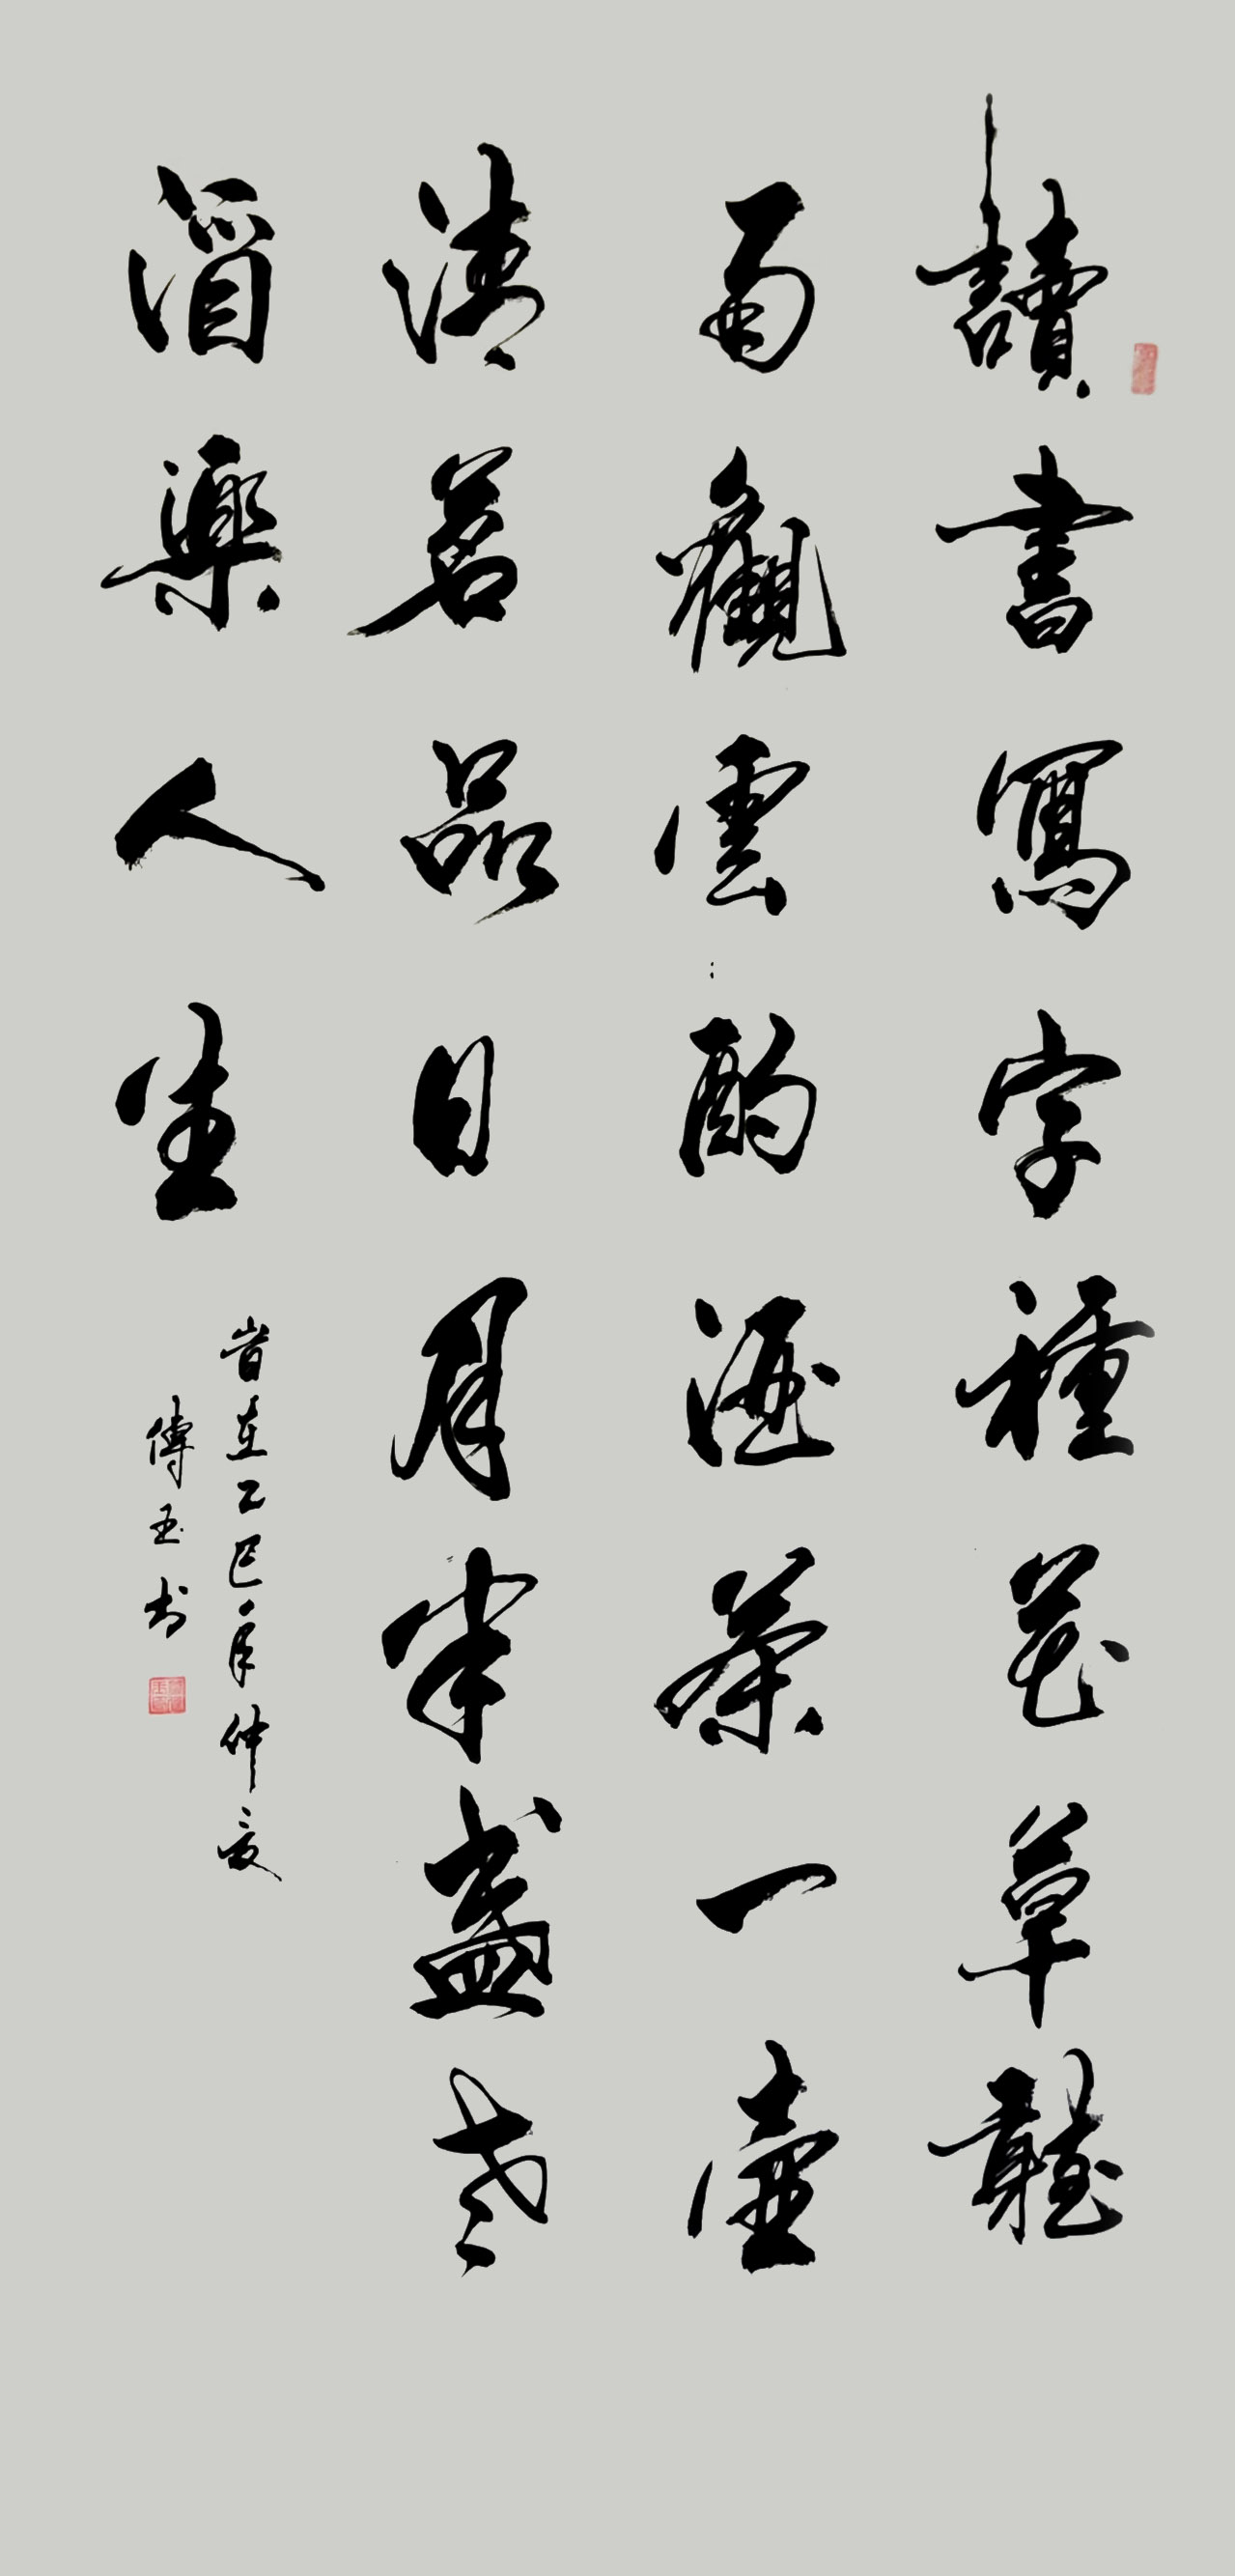 讀書寫字種花草聽
雨觀雲酌酒茶一壺
清茗品日月半盞老
酒樂人生
岩在乙巳年仲夏
傅玉书